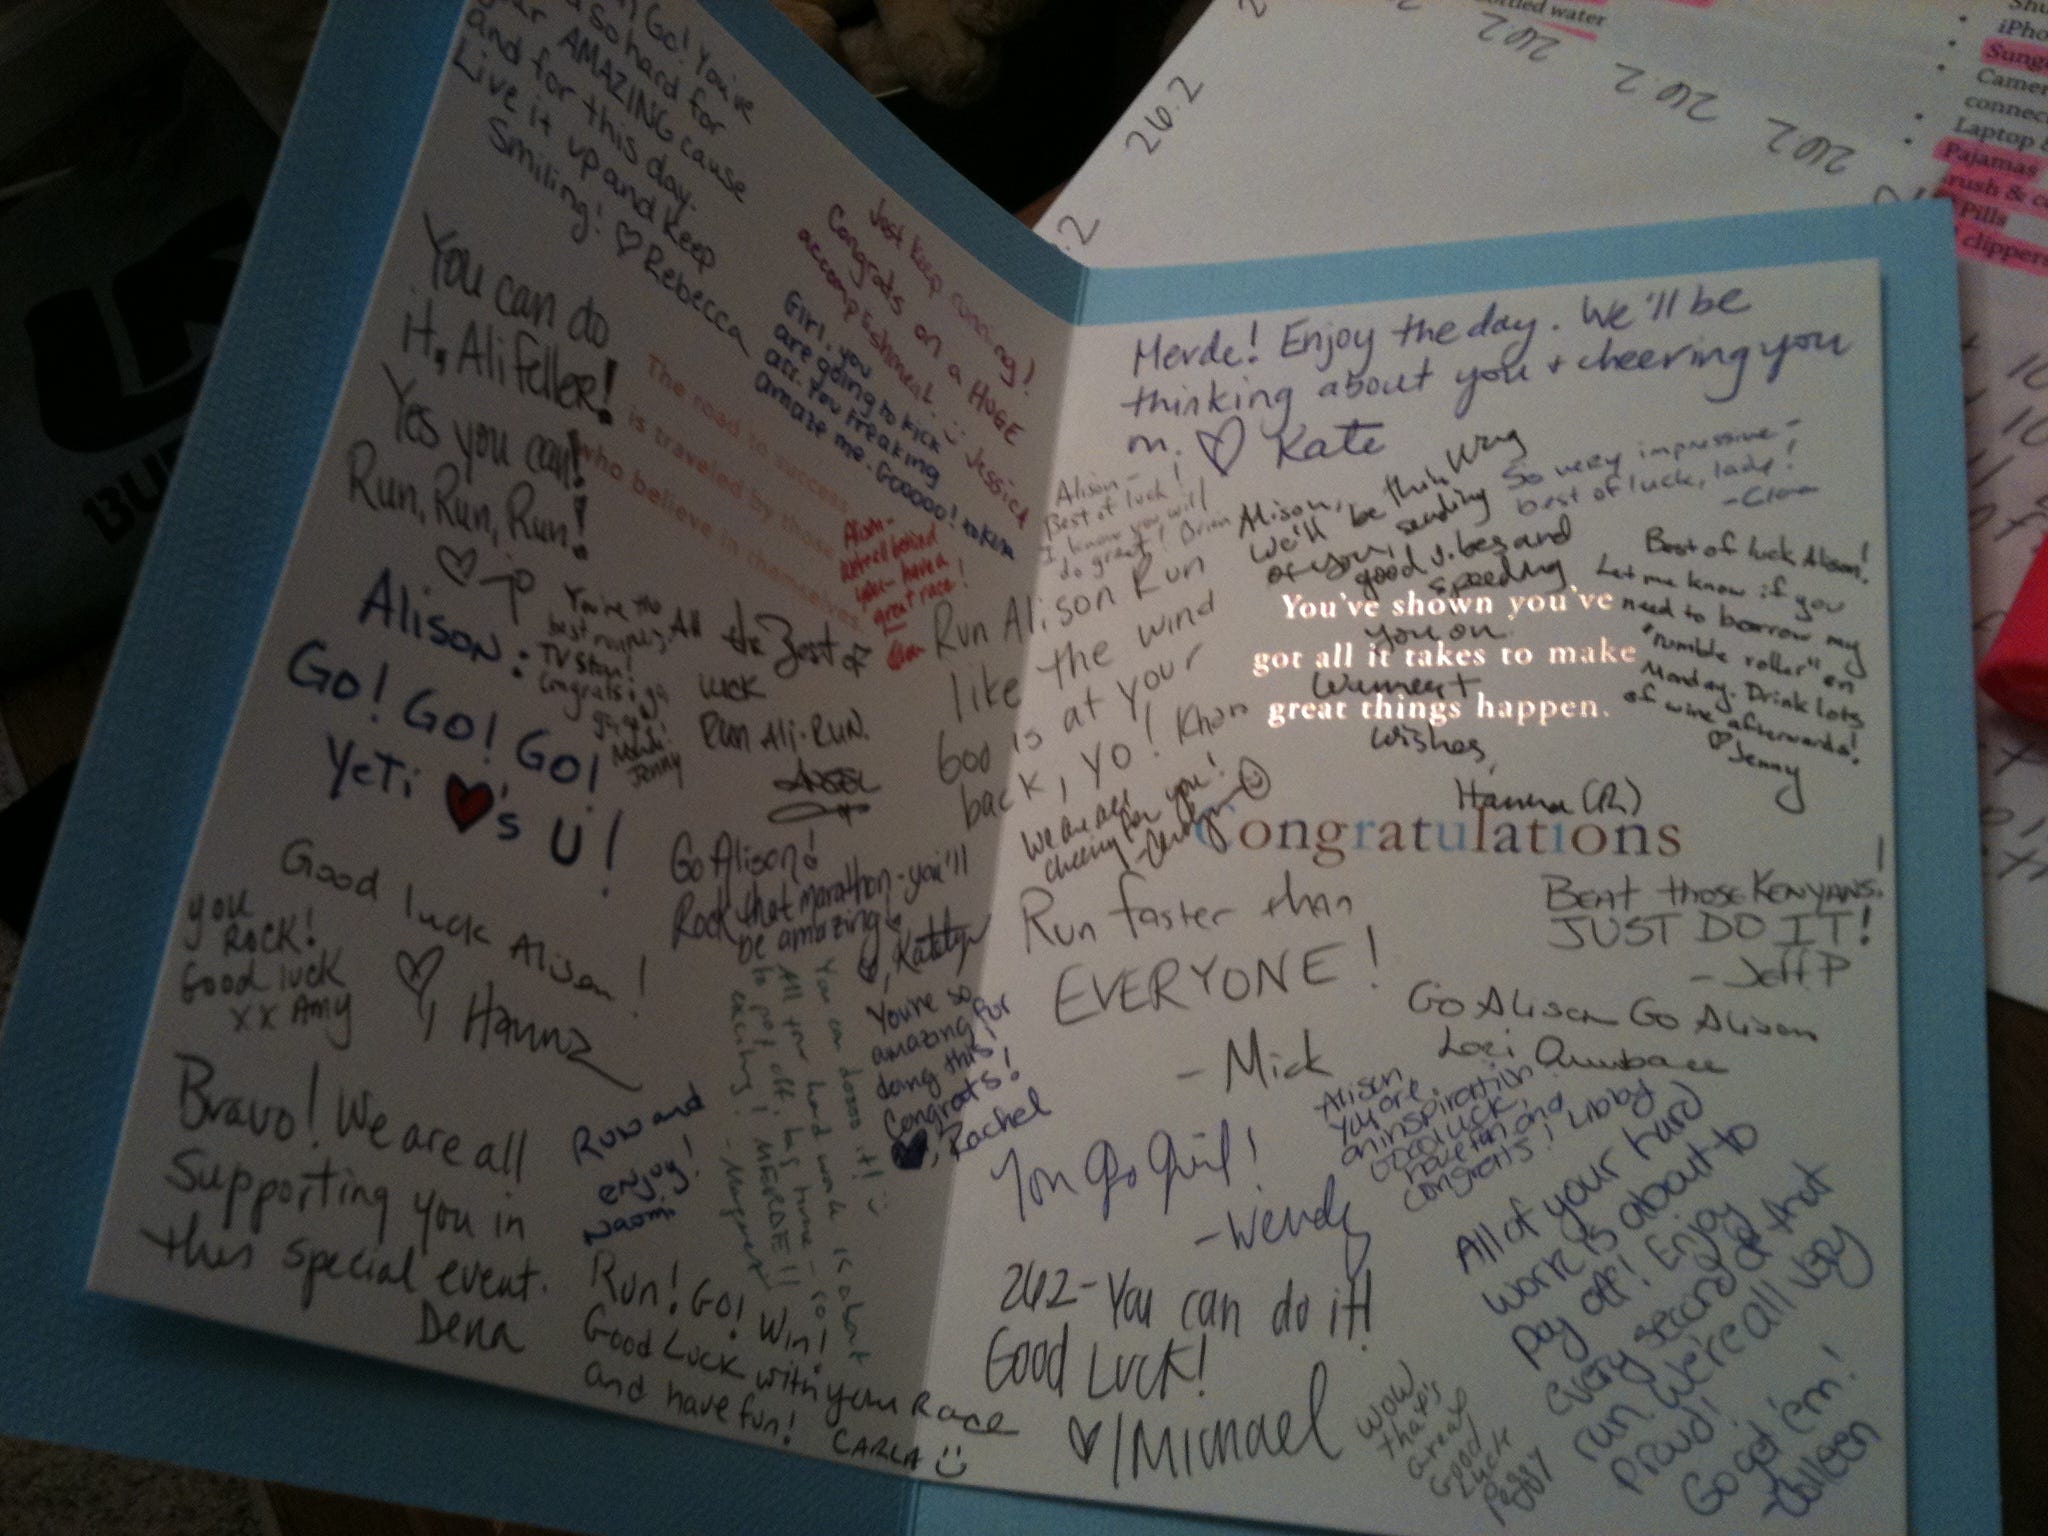 Go! You've
so hard for
AMAZING cause
and for this day.
Live it up and keep
smiling! ♡ Rebecca
You can do
it, Ali Feller!
Yes you can!
Run, Run, Run!
Just keep dancing!
Congrats on a HUGE
accomplishment. Jessica
Girl, you
are going to kick
ass. You freaking
amaze me. Gooooo!
The road to success
is traveled by those
who believe in themselves.
Alison-
behind
you - have a
great race!
Alison:
Go! Go! Go!
Yeti ♥'s U!
You're the
best
TV star!
Congrats
Jenny
All the Best of
luck
Run Ali-RUN.
Go Alison!
Rock that marathon - you'll
be amazing
♡, Katelyn
Good luck Alison!
♡, Hanna
you
ROCK!
Good luck
xx Amy
Bravo! We are all
supporting you in
this special event.
Dena
Run and
enjoy!
Naomi
You can doooo it!!
All your hard work is about
to pay off, has time - so
exciting! MERDE!!
- Margaret
You're so
amazing for
doing this!
Congrats!
♥, Rachel
Run! GO! Win!
Good Luck with your Race
and have fun! CARLA
Merde! Enjoy the day. We'll be
thinking about you + cheering you
on. ♡ Kate
Alison-
Best of luck!
I know you will
do great! Brian
Alison,
We'll be thinking
of you, sending
good vibes and
speeding
you on.
Warmest
wishes,
Hanna (R)
So very impressive-
best of luck, lady!
Best of luck Alison!
Let me know if you
need to borrow my
"rumble roller" on
Monday. Drink lots
of wine afterwards!
♡ Jenny
Run Alison Run
like the wind
boo is at your
back, yo! Khan
You've shown you've
got all it takes to make
great things happen.
We are all
cheering for you!
- Carolyn
Congratulations
Run faster than
EVERYONE!
- Mick
BEAT those KENYANS!
JUST DO IT!
- Jeff P
Go Alison Go Alison
Lori
Alison
You are
an inspiration
Good luck,
have fun and
congrats! Libby
You go girl!
- Wendy
26.2 - You can do it!
Good Luck!
♡/Michael
All of your hard
work is about to
pay off! Enjoy
every second of that
run. We're all very
proud!
Go get 'em!
- Colleen
Wow
that's
great
Good
Luck
Peggy
bottled water
26.2
26.2
26.2
26.2
Laptop
Pajamas
Pills
clippers